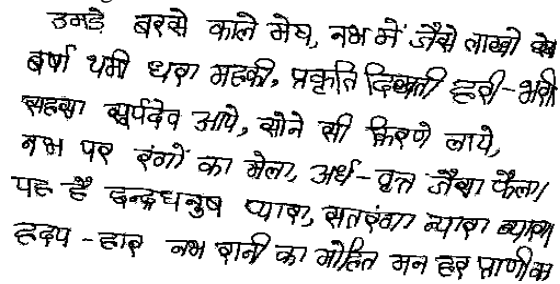 उमड़े बरसे काले मेघ, नभ में जैसे लाखो
बर्षा थमी धरा महकी, प्रकृति दिखती हरी-भरी
सहसा सूर्यदेव आये, सोने सी किरणे लाये,
नभ पर रंगों का मेला, अर्ध-वृत्त जैसा फैला।
यह है इन्द्रधनुष प्यारा, सतरंगा न्यारा न्यारा
ह्रदय-हार नभ रानी का मोहित मन हर प्राणी का